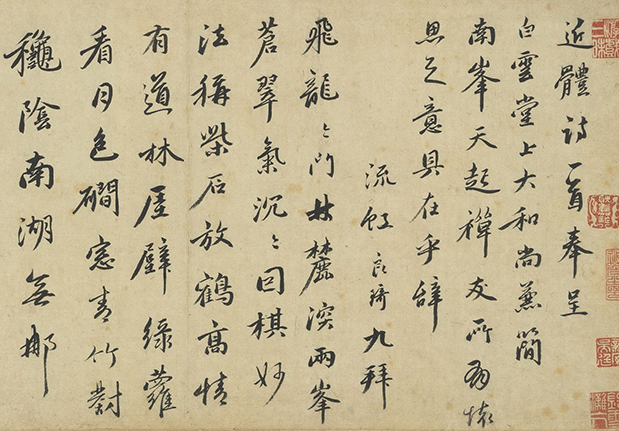 近體詩一首奉呈
白雲堂上大和尚兼簡
南峯天起禪友所懷
思之意具在乎辭
流良琦九拜
飛龍〻門林麓深兩峯
蒼翠氣沉〻回棋妙
法稱柴石放鶴高情
有道林屋壁緑蘿
看月色磵窻青竹對
龝陰南湖無